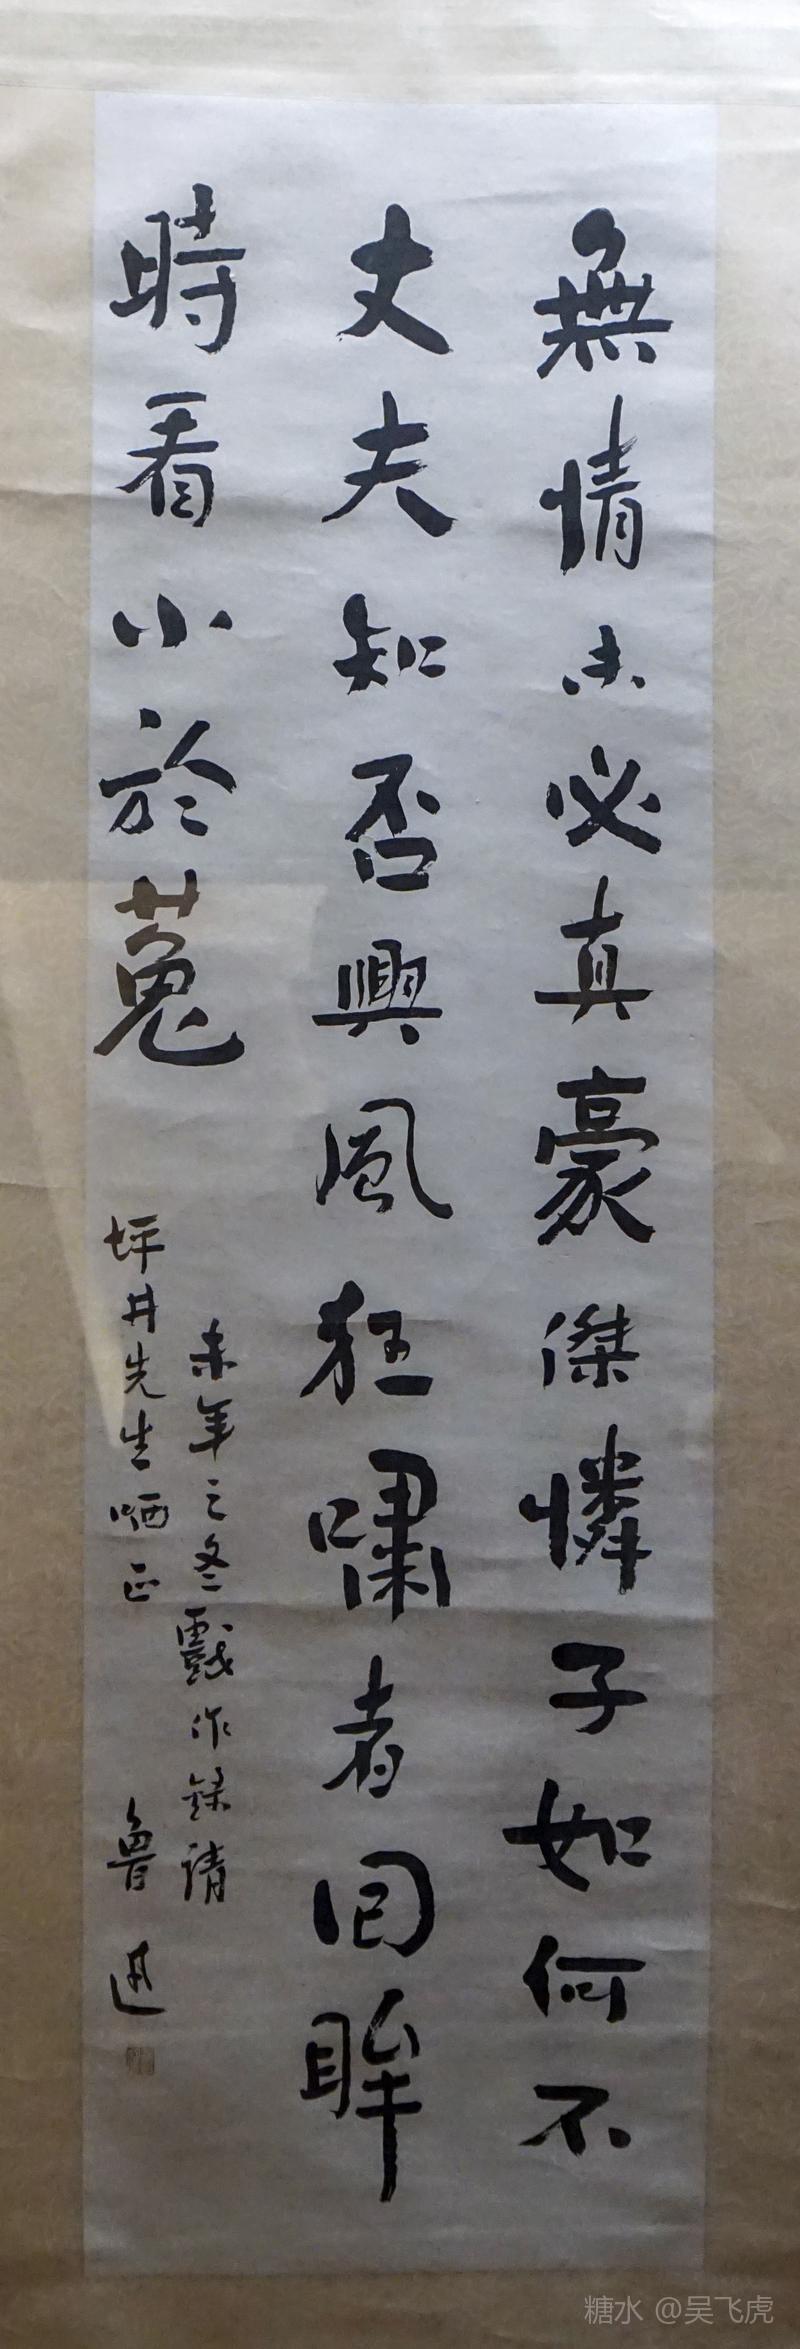 無情未必真豪傑憐子如何不
丈夫知否興風狂嘯者回眸
時看小於菟
未年之冬戲作錄請
坪井先生哂正
魯迅
糖水 @吴飞虎